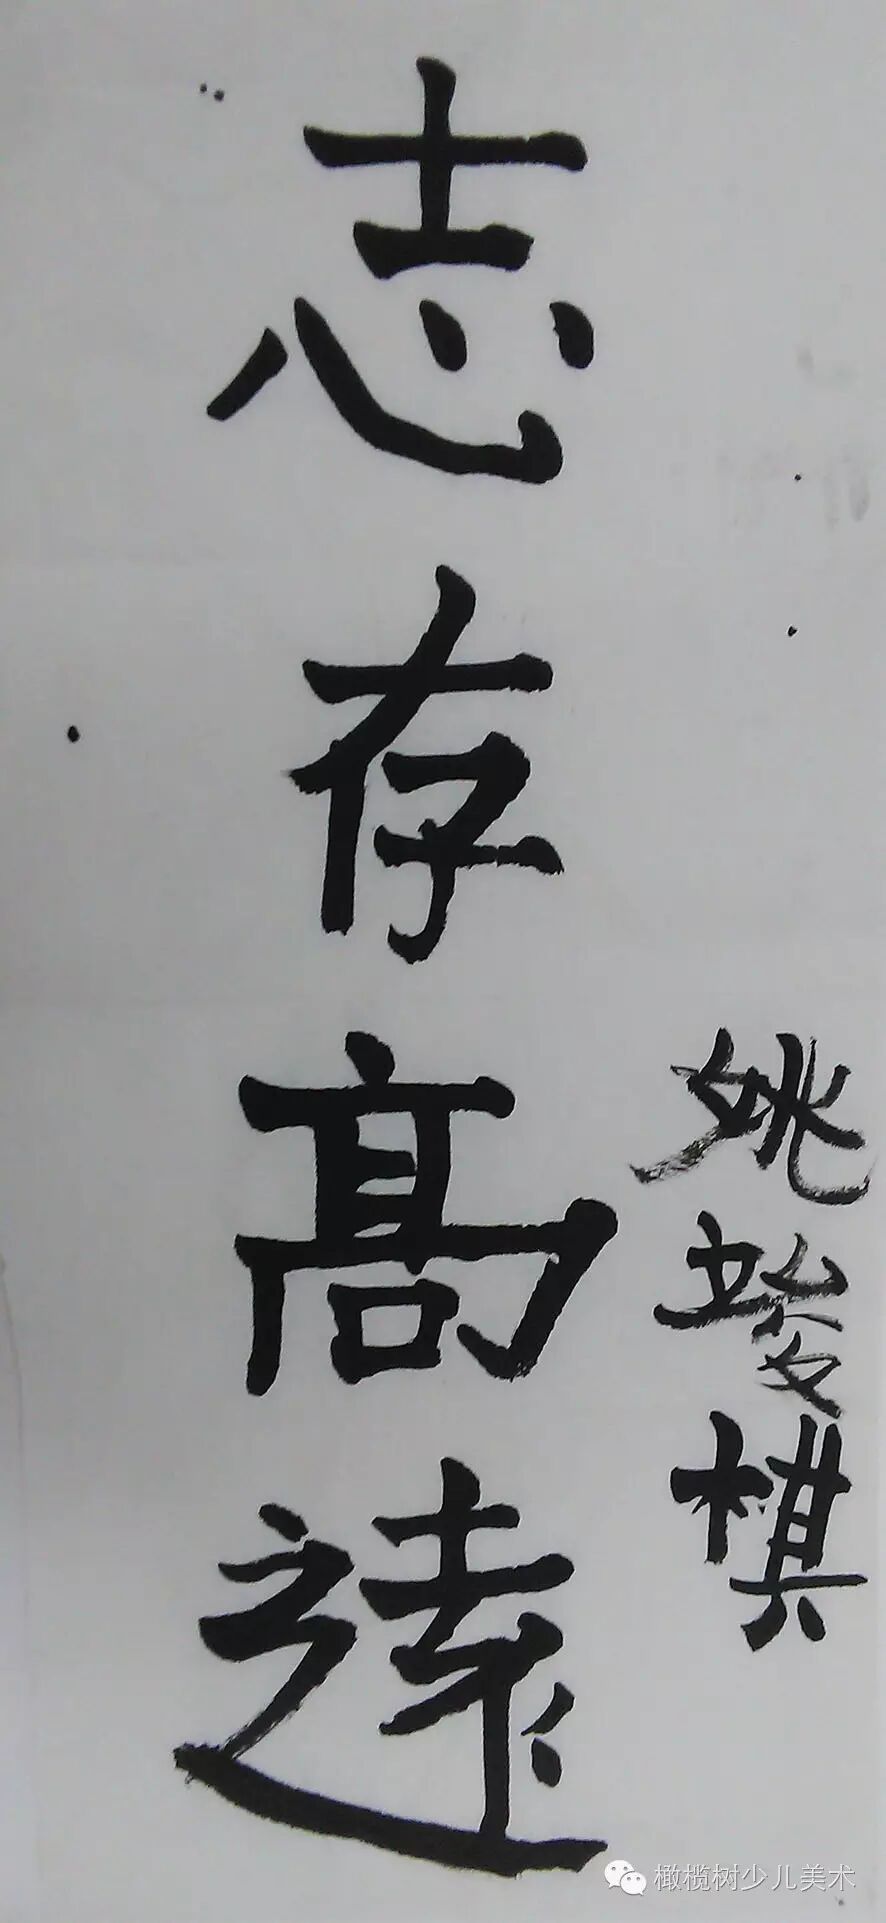 志存高遠
姚竣棋
橄榄树少儿美术